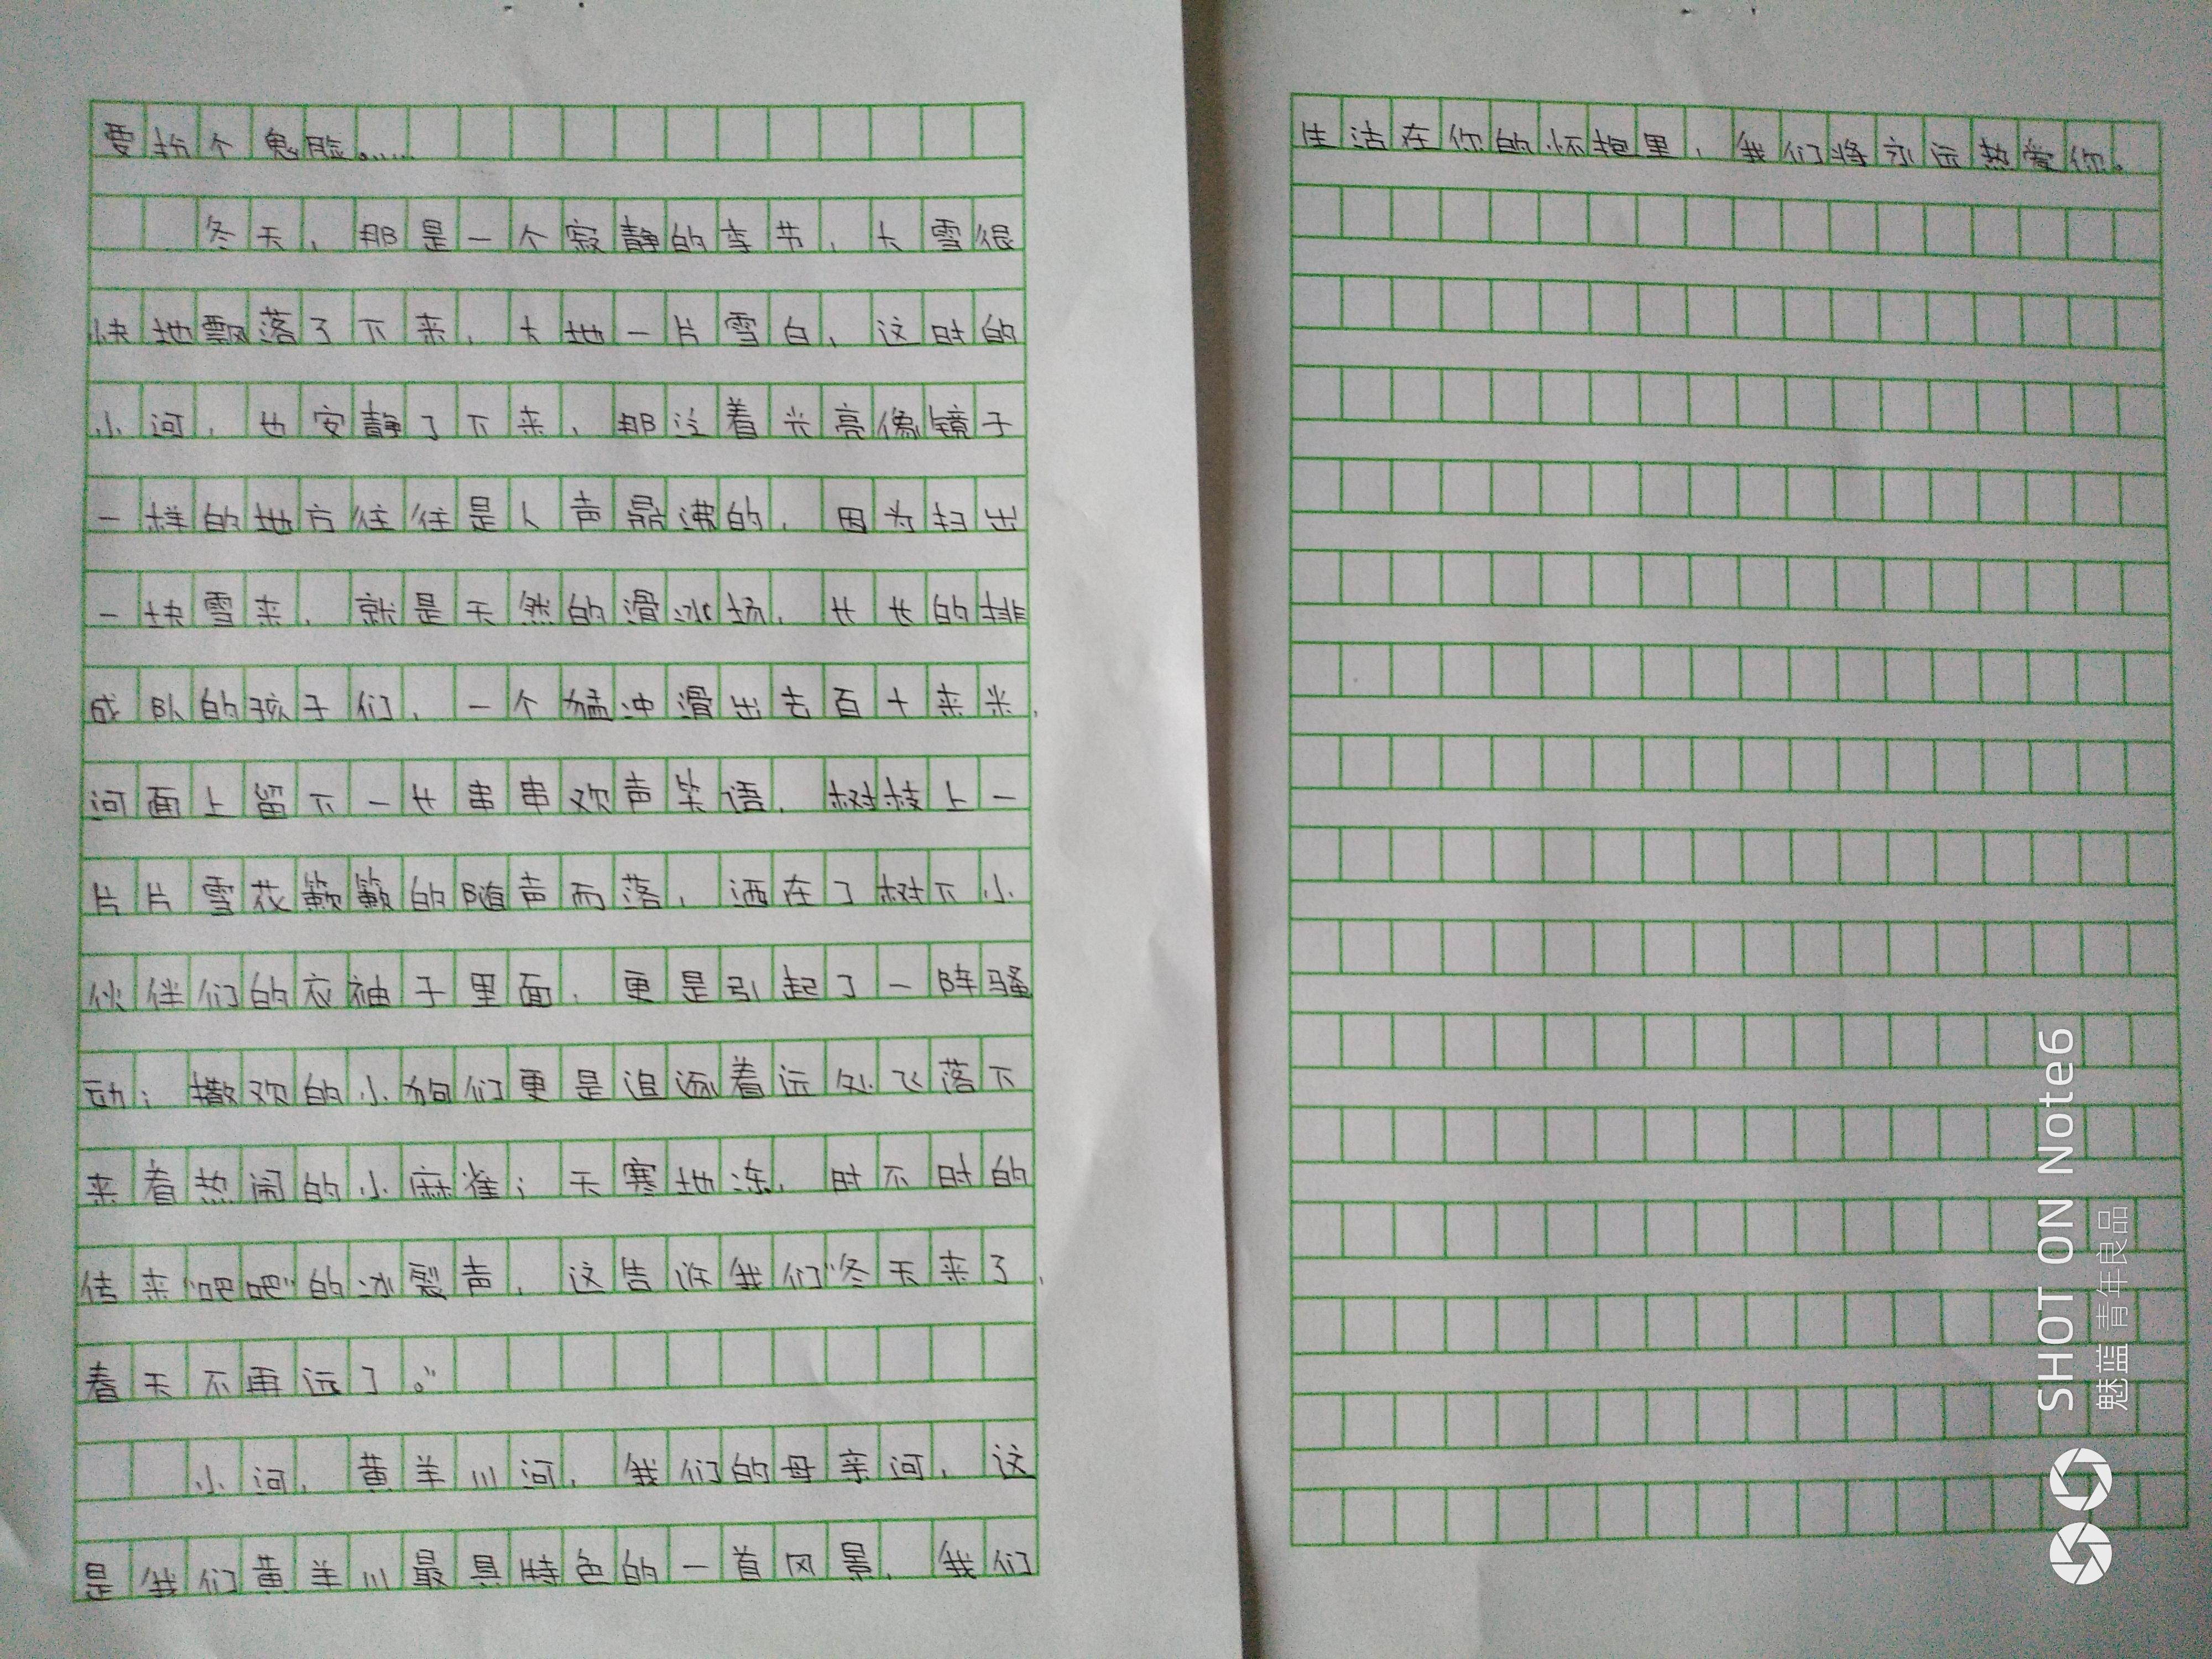 要扮个鬼脸。……
冬天，那是一个寂静的季节，大雪很
快地飘落了下来，大地一片雪白，这时的
小河，也安静了下来，那泛着光亮像镜子
一样的地方往往是人声鼎沸的，因为扫出
一块雪来，就是天然的滑冰场，长长的排
成队的孩子们，一个猛冲滑出去百十来米，
河面上留下一长串串欢声笑语，树枝上一
片片雪花簌簌的随声而落，洒在了树下小
伙伴们的衣袖子里面，更是引起了一阵骚
动；撒欢的小狗们更是追逐着远处飞落下
来看热闹的小麻雀；天寒地冻，时不时的
传来“吧吧”的冰裂声，这告诉我们“冬天来了，
春天不再远了。”
小河，黄羊川河，我们的母亲河，这
是我们黄羊川最具特色的一首风景，我们
生活在你的怀抱里，我们将永远热爱你。
SHOT ON Note6
魅蓝 青年良品